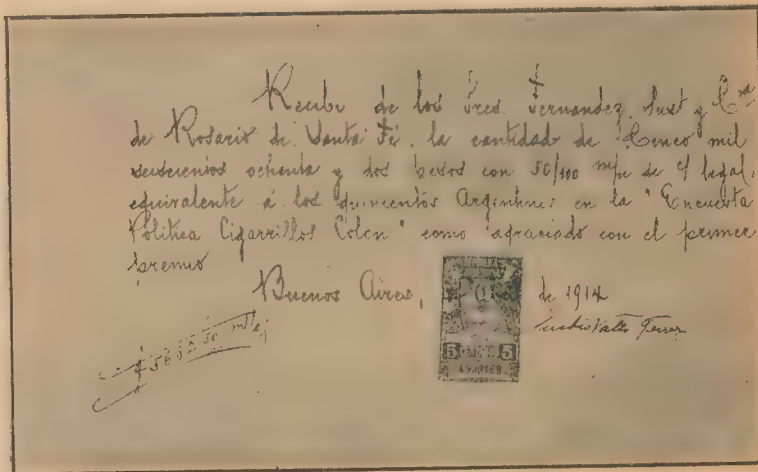 Recibí de los Sres. Fernandez, Sust y Cía
de Rosario de Santa Fé, la cantidad de Cinco mil
seiscientos ochenta y dos pesos con 50/100 m/n de c/ legal,
equivalente á los quinientos Argentinos en la "Encuesta
Politica Cigarrillos Colon" como agraciado con el primer
premio
Buenos Aires, de 1914
Valls Ferrer
$ 5682.50 m/l
5 5